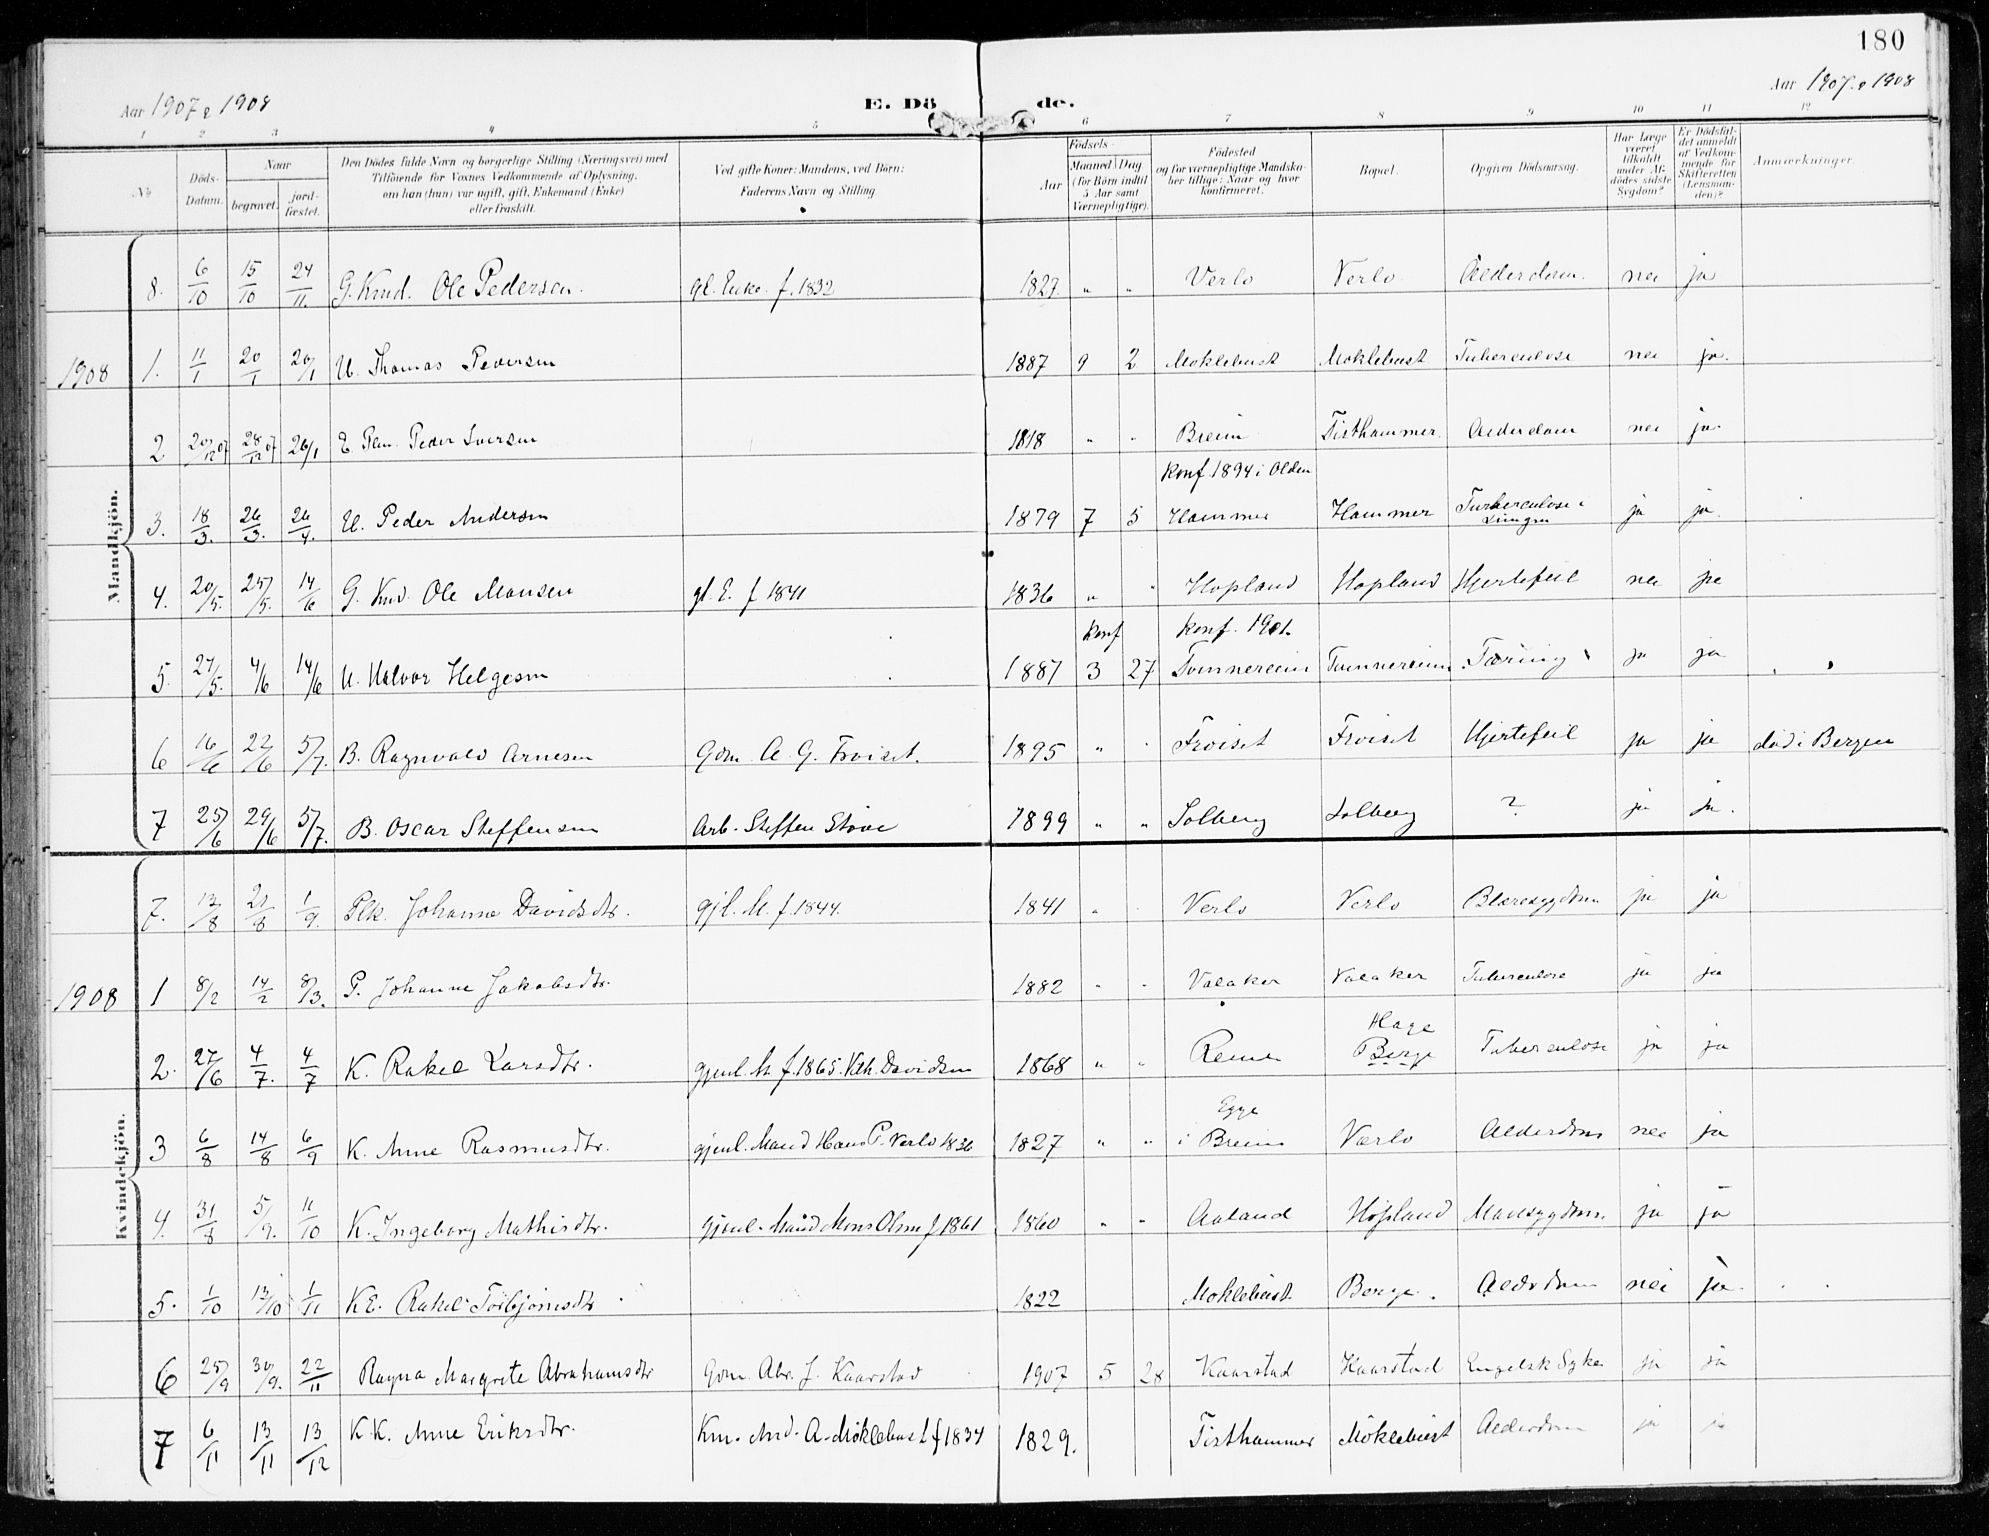 180
Aar 1907 & 1908
E. Dö de.
Aar 1907 & 1908
1 2 3 4 5 6 7 8 9 10 11 12
No
Döds-Datum.
Naar begravet. jord-fæstet.
Den Dödes fulde Navn og borgerlige Stilling (Næringsvei) med Tilföiende for Voxnes Vedkommende af Oplysning, om han (hun) var ugift, gift, Enkemand (Enke) eller fraskilt.
Ved gifte Koner: Mandens, ved Börn: Faderens Navn og Stilling.
Födsels-
Aar Maaned Dag (for Börn indtil 5 Aar samt Værnepligtige).
Födested og for værnepligtige Mandskaber tillige: Naar og hvor konfirmeret.
Bopæl.
Opgiven Dödsaarsag.
Har Læge været tilkaldt under Afdödes sidste Sygdom?
Er Dödsfaldet anmeldt af Vedkommende for Skifteretten (Lensmanden)?
Anmærkninger.
Mandkjön.
8. 6/10 15/10 24/11. G. Kmd. Ole Pedersen. gl. Enke f. 1832 1827. " " Verlo Verlo Alderdom. nei ja
1908 1. 11/1 20/1 20/1 U. Thomas Pedersen 1887 9 2 Moklebust Moklebust Tuberculose nei ja.
2 20/12 07 28/12 07 26/1 E. Peder Iversen 1818 " " Breim Tisthammer. Alderdom nei ja.
Konf. 1894 i Olden
3. 18/3. 26/3. 26/4. U. Peder Andersen 1879 7 5 Hammer Hammer Tuberculose i Lungen ja ja.
4. 20/5. 25/5. 14/6 G. Kmd. Ole Monsen gl. E. f 1841 1836 " " Hopland Hopland Hjertefeil nei ja
Konf Konf. 1901.
5 27/5. 4/6 14/6 U. Halvor Helgesen 1887 3 27 Tonnereim Tunnereim Tæring ja ja
6 16/6 22/6 5/7. B. Ragnvald Arnesen Gdm. A. G. Froiset. 1895 " " Froiset Froiset Hjertefeil ja ja död i Bergen
7 25/6 29/6 5/7. B. Oscar Steffensen Arb. Steffen Stove 1899 " " Solberg Solberg ? ja ja.
Kvindekjön.
7. 13/8 21/8 1/9. Johanne Davidsdtr. gjl. M. f. 1844. 1841 " " Verlo Verlo Blæresygdom ja ja
1908 1 8/2 14/2 8/3. P. Johanne Jakobsdtr. 1882 " " Valaker Valaker Tuberculose ja ja
2. 27/6 4/7. 4/7 K. Rakel Larsdtr. gjenl. M f. 1865. Davidsen 1868 " " Hage Berge Tuberculose ja ja
3 6/8 14/8 6/9 K. Anne Rasmusdtr. gjenl. Mand Hans P. Verlo 1836 1827 " " Egge i Breim Verlo Alderdom nei ja
4. 31/8 5/9. 11/10 K. Ingeborg Mathisdtr. Gjenl. Mand Mons Olsen f 1861 1860 " " Aaland Hopland Mavesygdom. ja ja
5. 1/10 13/10 1/11 K E. Rakel Torbjörnsdtr 1822 Moklebust. Berge. Alderdom nei ja.
6 25/9 30/9. 22/11 Ragna Margrete Abrahamsdtr Gdm. Abr. J. Kaarstad 1907 5 28 Kaarstad Kaarstad Engelsk Syke ja ja
7 6/11 13/11 13/12 K.K. Anne Eriksdtr. Km. And. A. Möklebust f 1834 1829. Tisthammer Möklebust Alderdom ja ja